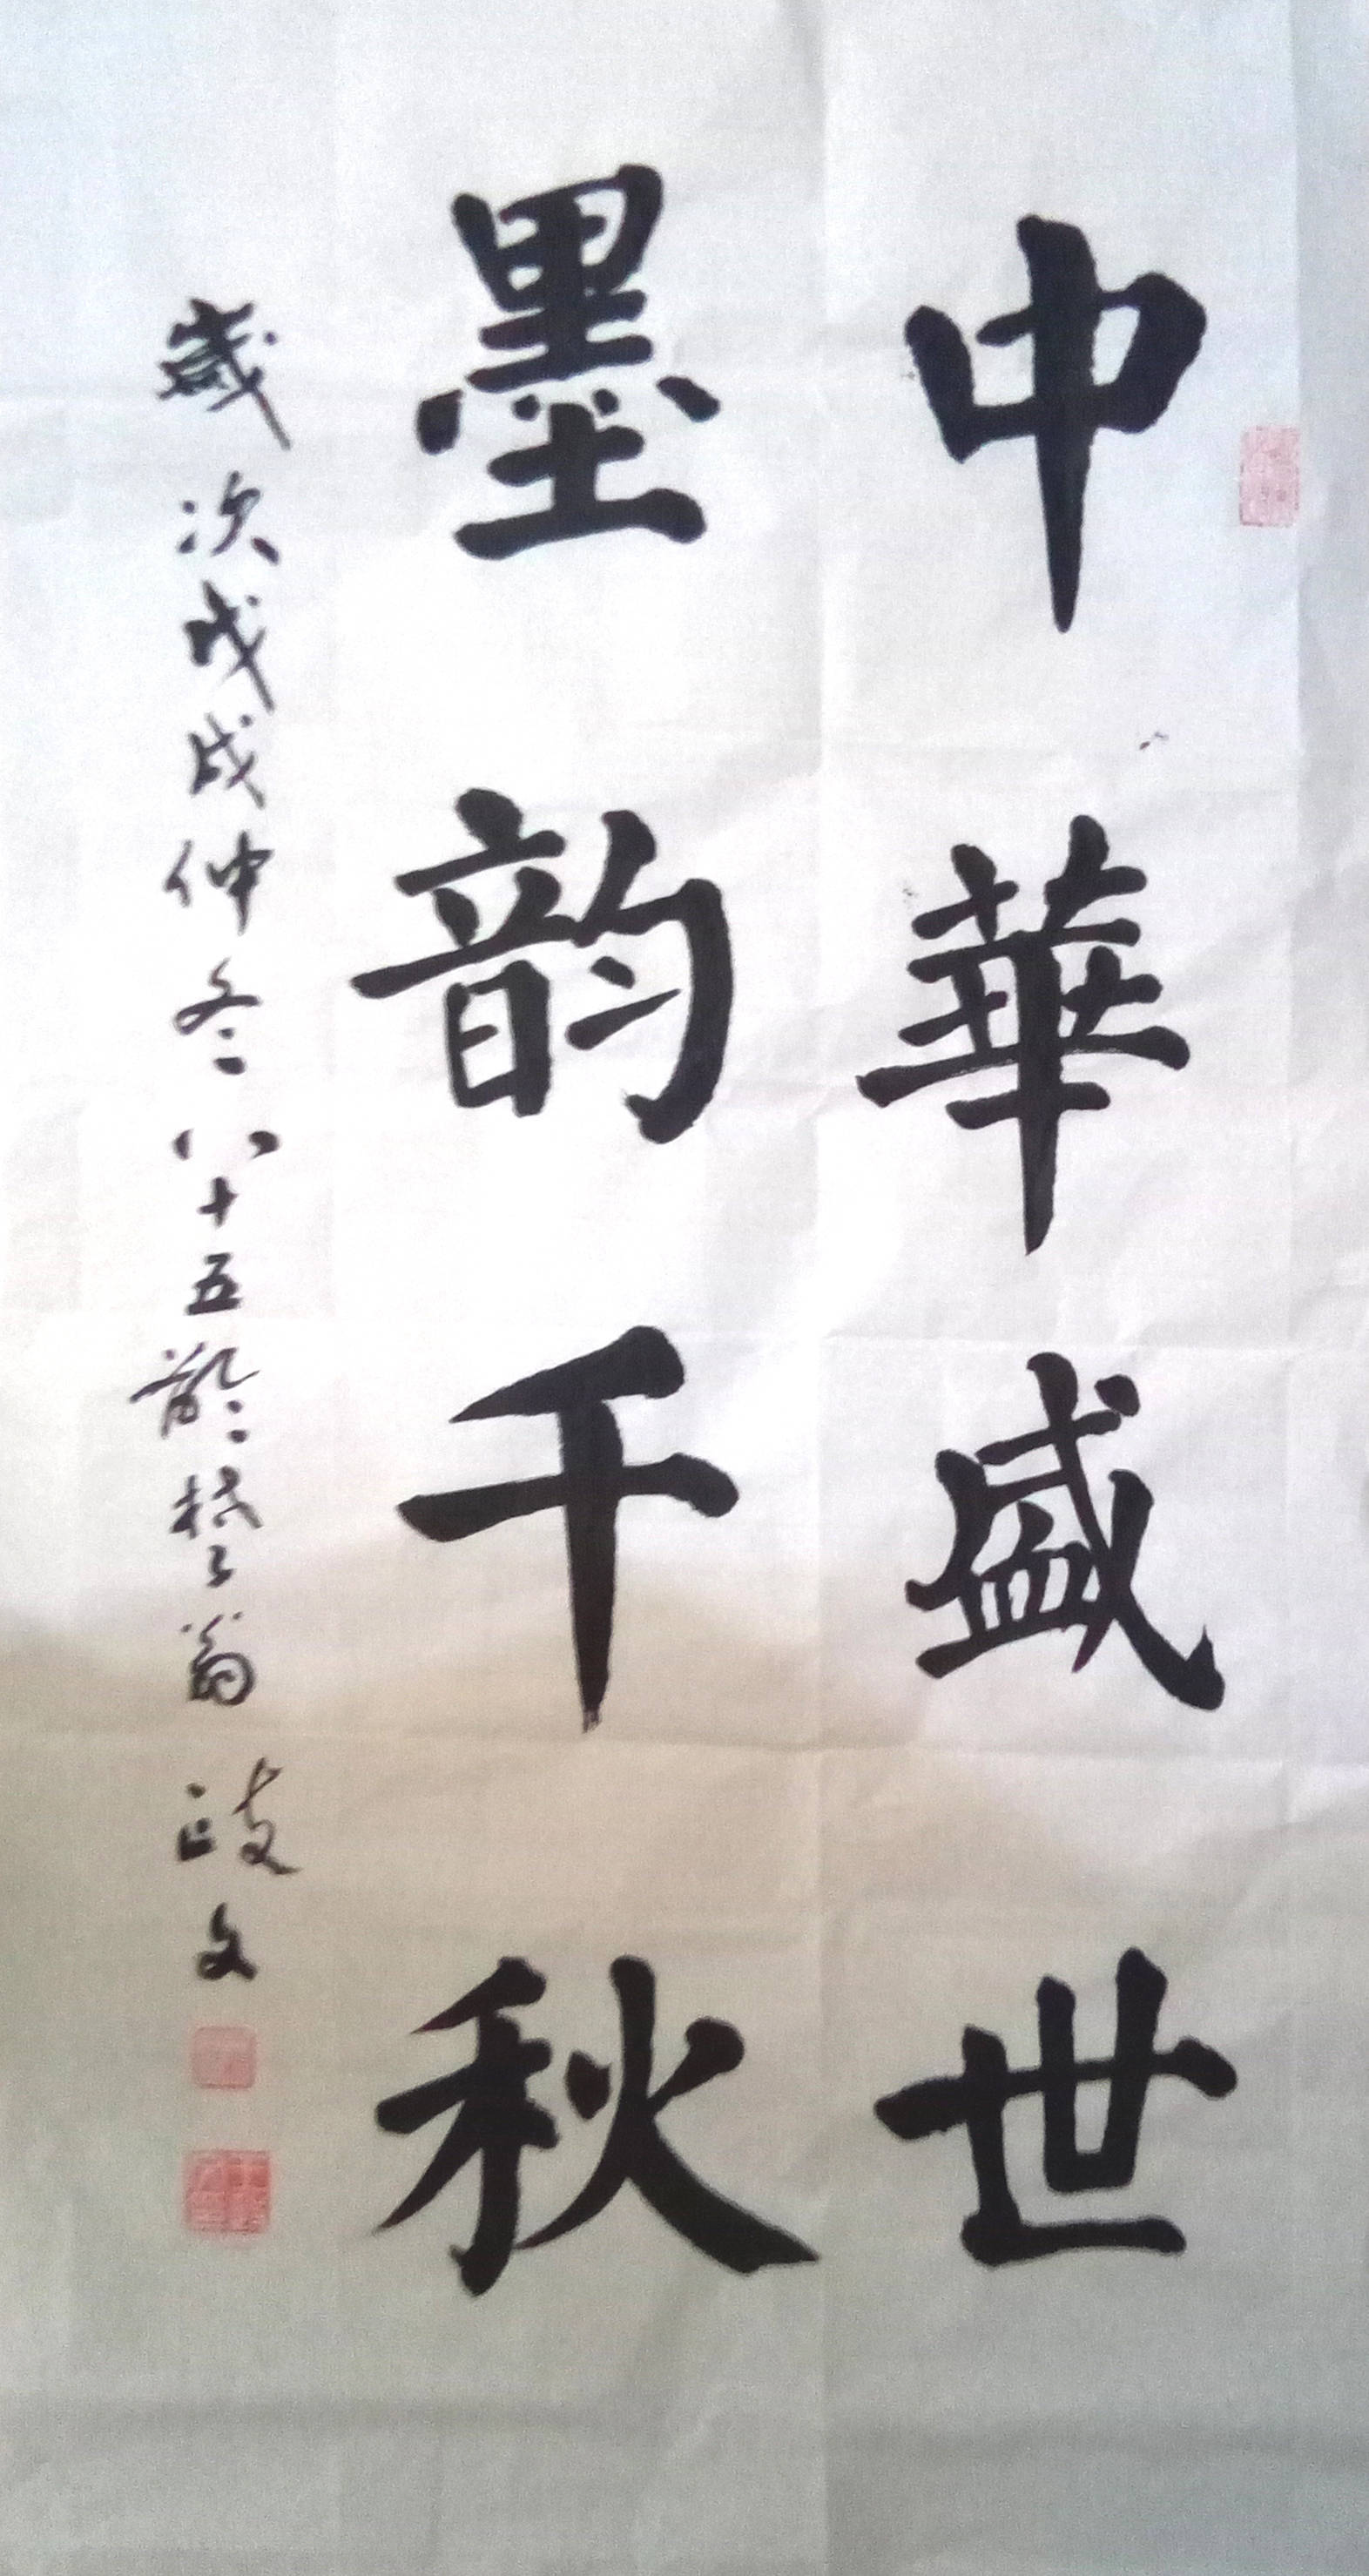 中華盛世
墨韵千秋
歲次戊戌仲冬八十五齡 翁 政文